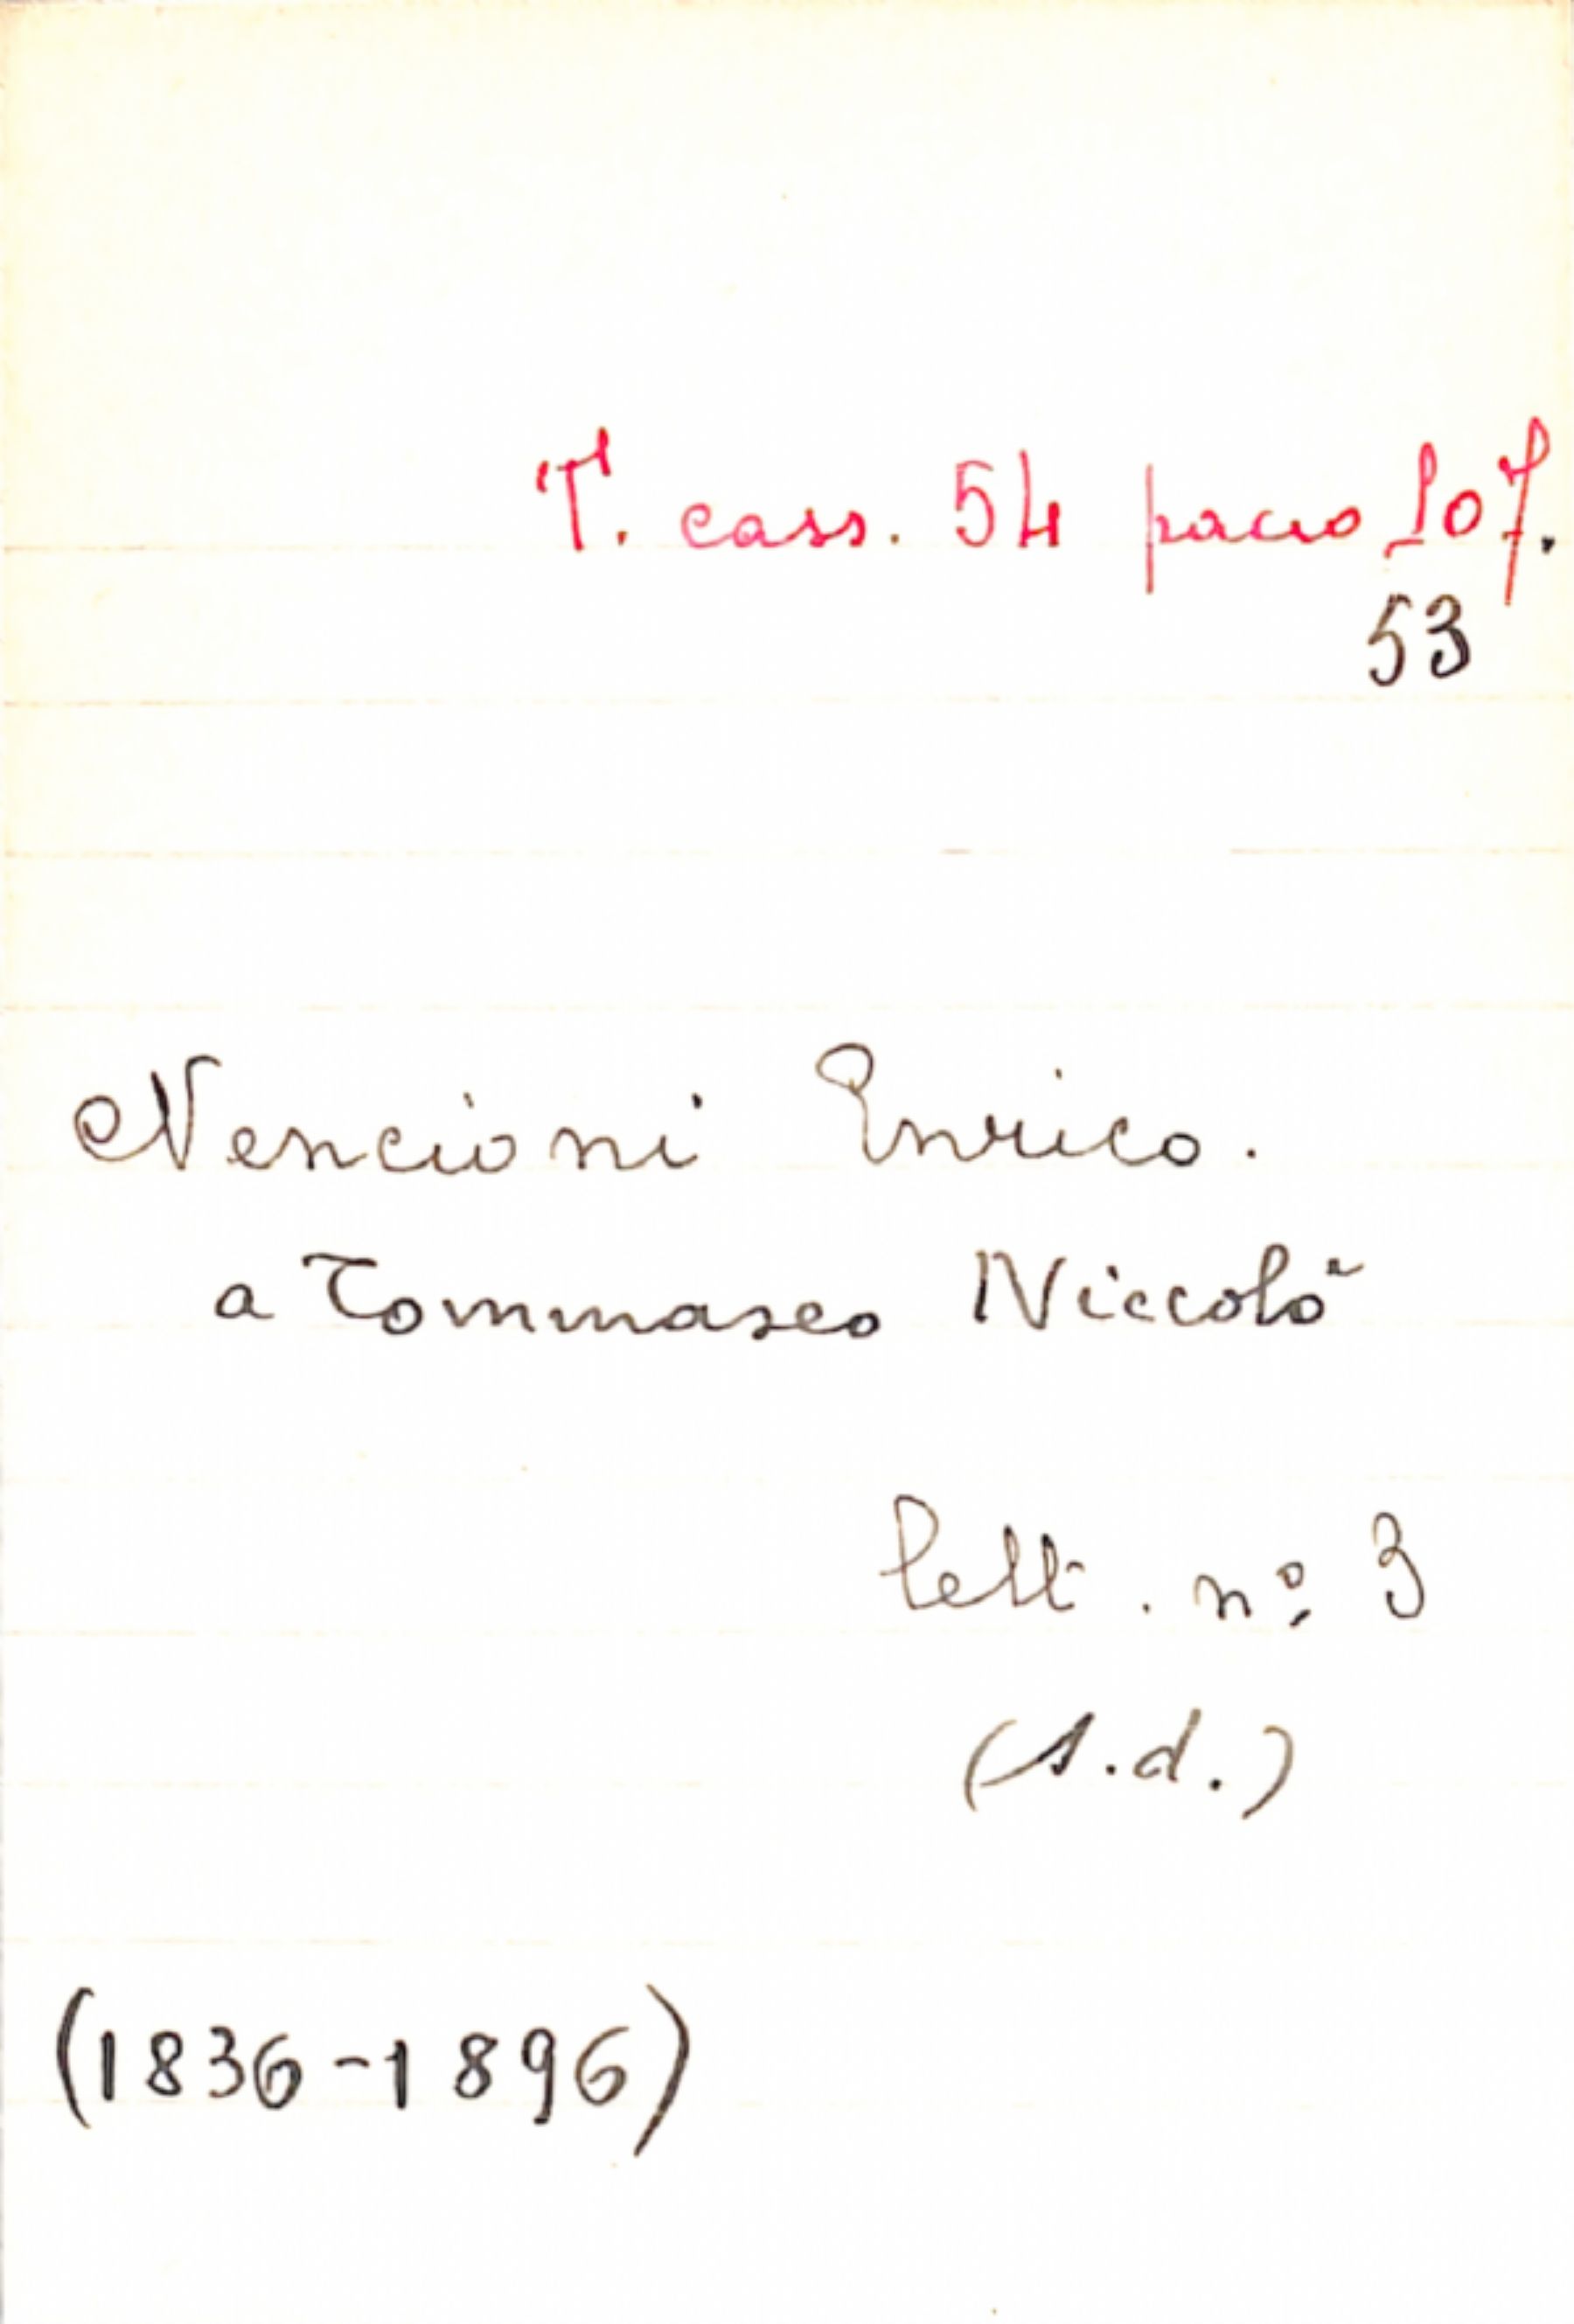 T. cass. 54 pacco 107.
53
Nencioni Enrico.
a Tommaseo Niccolò
lett. nº 3
(s.d.)
(1836-1896)